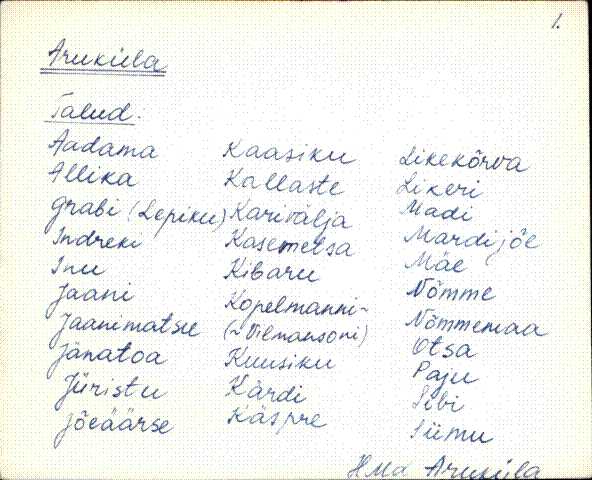 1.
Aruküla
Talud:
Aadama
Allika
Grabi (Lepiku)
Indreki
Inu
Jaani
Jaanimatsu
Jänatoa
Jüristu
Jõeäärse
Kaasiku
Kallaste
Karivälja
Kasemetsa
Kibaru
Kopelmanni~
(~Vilmansoni)
Kuusiku
Kärdi
Käspre
Likekõrva
Likeri
Madi
Mardijõe
Mäe
Nõmme
Nõmmemaa
Otsa
Paju
Sibi
Siimu
HMd Aruküla